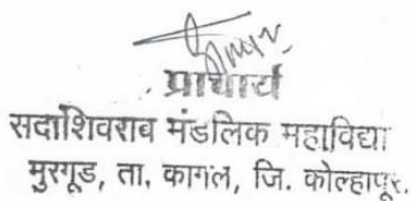 प्राचार्य
सदाशिवराव मंडलिक महाविद्या
मुरगूड, ता. कागल, जि. कोल्हापूर.